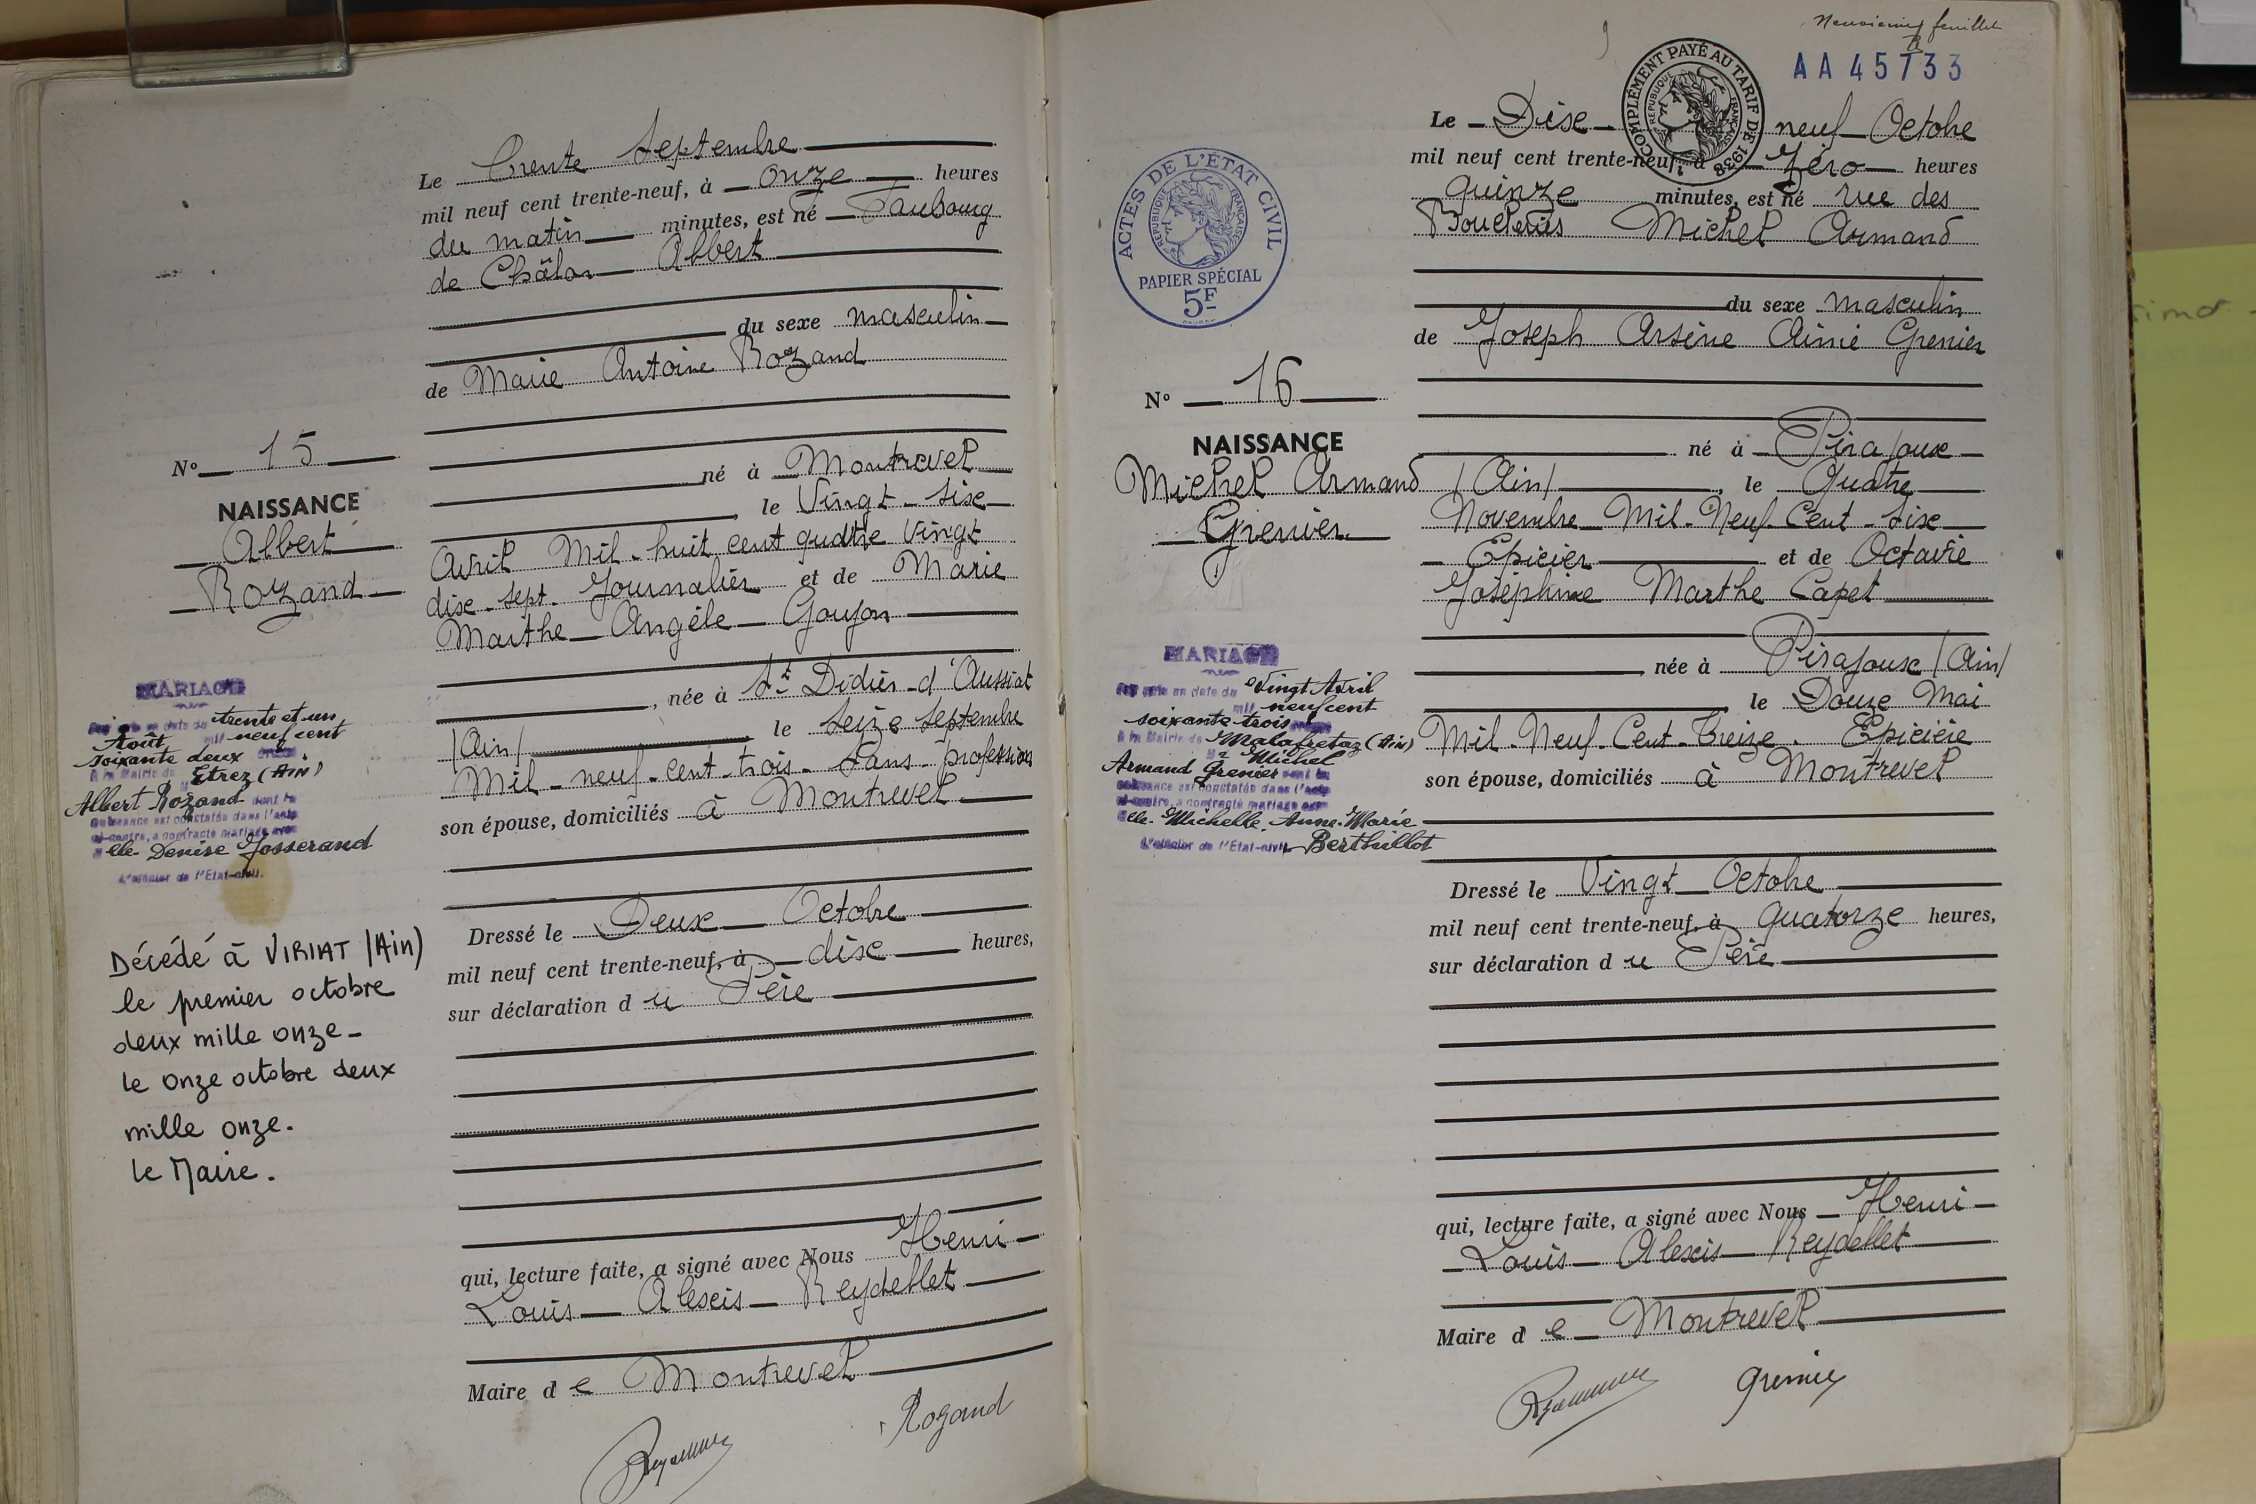 Le Trente Septembre
mil neuf cent trente-neuf, à onze heures
du matin minutes, est né Faubourg
de Châlon Albert
du sexe masculin
de Marie Antoine Rozand
né à Montrevel
le Vingt-six
Avril Mil-huit cent quatre Vingt
dix-sept-Journalier et de Marie
Marthe-Angèle-Goujon
, née à St Didier-d'Aussiat
/Ain/ le Seize Septembre
Mil-neuf-cent-trois-Sans-profession
son épouse, domiciliés à Montrevel
Dressé le Deux Octobre
mil neuf cent trente-neuf, à dix heures,
sur déclaration du Père
qui, lecture faite, a signé avec Nous Henri
Louis Alexis Reydellet
Maire de Montrevel
Rozand
No 15
NAISSANCE
Albert
Rozand
MARIAGE
en date du trente et un
Août mil neuf cent
soixante deux
à la Mairie de Etrez (Ain)
Albert Rozand dont la
naissance est constatée dans l'acte
ci-contre, a contracté mariage avec
elle Denise Josserand
L'officier de l'Etat-civil.
Décédé à VIRIAT (Ain)
le premier octobre
deux mille onze-
le onze octobre deux
mille onze.
le Maire.
Neuvième feuillet
9
AA 45733
COMPLÉMENT PAYÉ AU TARIF DE 1938
RÉPUBLIQUE FRANÇAISE
Le Dix-neuf Octobre
mil neuf cent trente-neuf, à Zéro heures
quinze minutes, est né rue des
Boucheries Michel Armand
du sexe masculin
de Joseph Arsène Aimé Grenier
né à Pirajoux
/Ain/ , le Quatre
Novembre Mil-Neuf-Cent-Six
Epicier et de Octavie
Joséphine Marthe Capet
née à Pirajoux /Ain/
le Douze Mai
Mil-Neuf-Cent-Treize. Epicière
son épouse, domiciliés à Montrevel
Dressé le Vingt Octobre
mil neuf cent trente-neuf, à quatorze heures,
sur déclaration du Père
qui, lecture faite, a signé avec Nous Henri
Louis Alexis Reydellet
Maire de Montrevel
Grenier
ACTES DE L'ÉTAT CIVIL
RÉPUBLIQUE FRANÇAISE
PAPIER SPÉCIAL
5F
No 16
NAISSANCE
Michel Armand
Grenier
MARIAGE
en date du Vingt Avril
mil neuf cent
soixante trois
à la Mairie de Malafretaz (Ain)
Michel
Armand Grenier dont la
naissance est constatée dans l'acte
ci-contre, a contracté mariage avec
elle Michelle Anne-Marie
L'officier de l'Etat-civil Berthillot